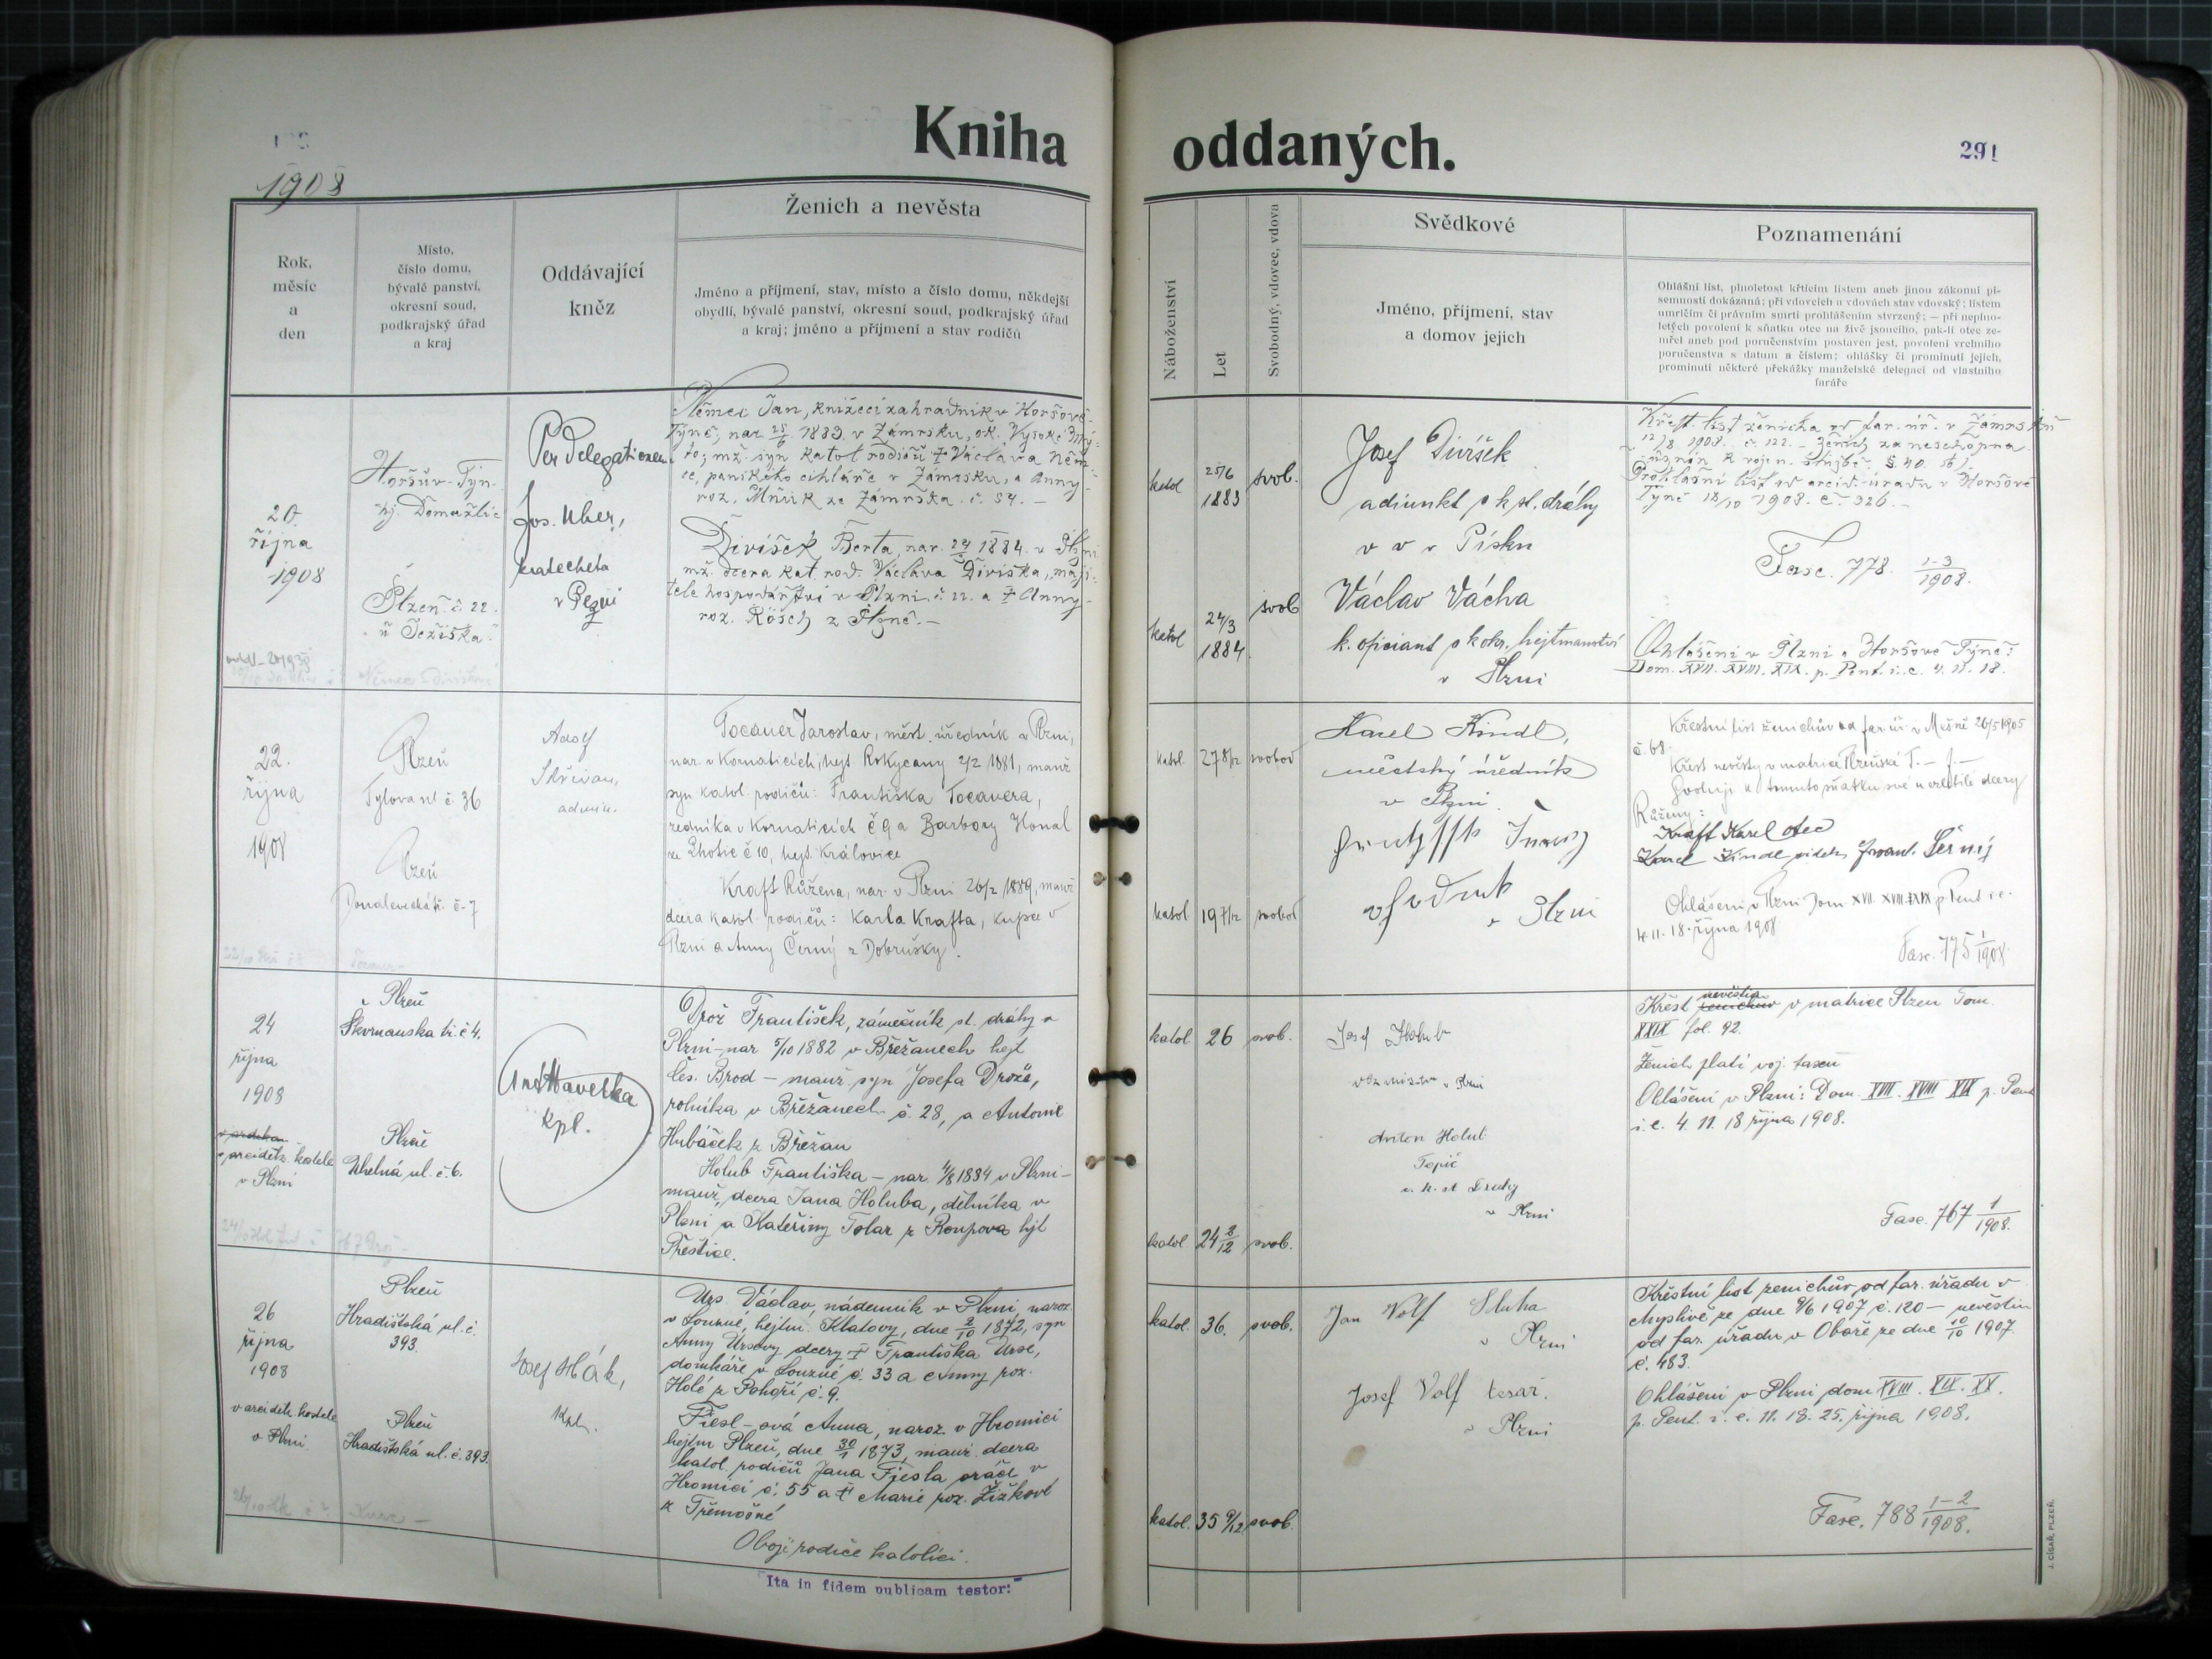 Kniha oddaných.
291
1908
Rok, měsíc a den
Místo, číslo domu, bývalé panství, okresní soud, podkrajský úřad a kraj
Oddávající kněz
Ženich a nevěsta
Jméno a příjmení, stav, místo a číslo domu, někdejší
obydlí, bývalé panství, okresní soud, podkrajský úřad
a kraj; jméno a příjmení a stav rodičů
Náboženství
Let
Svobodný, vdovec, vdova
Svědkové
Jméno, příjmení, stav
a domov jejich
Poznamenání
Ohlášní list, plnoletost křtícím listem aneb jinou zákonní pí-
semností dokázaná; při vdovcích a vdovách stav vdovský; listem
umrlčím či právním smrti prohlášením stvrzený; — při neplno-
letých povolení k sňatku otce na živě jsoucího, pak-li otec ze-
mřel aneb pod poručenstvím postaven jest, povolení vrchního
poručenstva s datum a číslem; ohlášky či prominutí jejich,
prominutí některé překážky manželské delegací od vlastního
faráře
20.
října
1908
Horšův-Týn
hj. Domažlic
Plzeň č. 22.
Per Delegationem
Jos. Uher,
katecheta
v Plzni
Němec Jan, knížecí zahradník v Horšově-
Týně, nar. 25/6 1883 v Zámrsku, ok. Vysoké Mý-
to; mž. syn katol. rodičů † Václava Něm-
ce, panského cihláře v Zámrsku, a Anny
roz. Mňuk ze Zámrska č. 54. —
Divíšek Berta, nar. 24/3 1884 v Plzni
mž. dcera kat. rod. Václava Divíška, maji-
tele hospodářství v Plzni č. 22. a † Anny
roz. Rösch z Plzně. —
katol 25/6 1883 svob.
katol 24/3 1884 svob
Josef Divíšek
adjunkt c k st. dráhy
v Písku
Václav Vácha
k. oficiant c k okr. hejtmanství
v Plzni
Křest. list ženicha od far. úř. v Zámrsku
12/8 1908. č. 122. — Ženich za neschopna
uznán k vojen. službě. §. 40.
Prohlašní list od arcid. úřadu v Horšově
Týně 18/10 1908. č. 326. —
Fasc. 778. 1-3/1908.
Ohlášeni v Plzni a Horšově Týně:
Dom. XVII. XVIII. XIX. p. Pent. i. e. 4. 11. 18.
22.
října
1908
Plzeň
Tylova ul. č. 36
Plzeň
č. 7
Adolf
Skřivan,
admin.
Tocauer Jaroslav, měst. úředník v Plzni,
nar. v Kornaticích, hejt. Rokycany 2/2 1881, manž
syn katol. rodičů: Františka Tocauera,
řezníka v Kornaticích č 9 a Barbory Honal
ze Lhotic č 10, hejt. Kralovice
Kraft Růžena, nar. v Plzni 26/2 1889, manž
dcera katol. rodičů: Karla Krafta, kupce v
Plzni a Anny Černý z Dobrušky.
katol. 27 8/12 svobod
katol 19 7/12 svobod
Karel Kindl,
městský úředník
v Plzni.
v Plzni
Křestní list ženichův od far. úř. v Mešně 26/5 1905
č. 68.
Křest nevěsty v matrice Plzeňské T. — f. —
Svoluji k tomuto sňatku své nezletilé dcery
Růženy:
Kraft Karel otec
Karel Kindl svědek Frant. Černý
Ohlášeni v Plzni Dom. XVII. XVIII. XIX p. Pent i e.
4. 11. 18. října 1908
Fasc. 775 1/1908.
24
října
1908
v arciděk. kostele
v Plzni
Plzeň
Škvrnanska tř. č 4.
Plzeň
Uhelná ul. č. 6.
Ant Havelka
kpl.
Drož František, zámečník st. dráhy v
Plzni — nar 5/10 1882 v Břežanech hejt
Čes. Brod — manž. syn Josefa Drože,
rolníka v Břežanech č. 28, a Antonie
Hubáček z Břežan
Holub Františka — nar. 4/8 1884 v Plzni —
manž. dcera Jana Holuba, dělníka v
Plzni a Kateřiny Tolar z Roupova hjt
Přeštice.
katol 26 svob.
katol. 24 2/12 svob.
Josef Holub
v Plzni
Anton Holub
Topič
c. k. st Draky
v Plzni
Křest nevěstin v matrice Plzeň Tom.
XXIX fol. 92.
Ženich platí voj. taxu
Ohlášeni v Plzni: Dom. XVII. XVIII XIX p. Pent
i. e. 4. 11. 18 října 1908.
Fasc. 767 1/1908.
26
října
1908
v arciděk. kostele
v Plzni
Plzeň
Hradišťská ul. č.
393.
Plzeň
Hradišťská ul. č. 393.
Josef Hák,
Kpl.
Urs Václav, nádenník v Plzni, naroz.
v Louzné, hejtm. Klatovy, dne 2/10 1872, syn
Anny Ursovy dcery † Františka Urse,
domkáře v Louzné č. 33 a Anny roz.
Holé z Pohoří č. 9.
Fiesl-ová Anna, naroz. v Hromici
hejtm Plzeň, dne 30/1 1873, manž. dcera
katol. rodičů Jana Fiesla oráč v
Hromici č. 55 a † Marie roz. Žižkové
z Třemošné
Obojí rodiče katolíci.
katol. 36. svob.
katol. 35 9/12 svob.
Jan Volf Sluha
v Plzni
Josef Volf tesař.
v Plzni
Křestní list ženichův od far. úřadu v
Myslivě ze dne 9/6 1907 č. 120 — nevěstin
od far. úřadu v Oboře ze dne 10/10 1907
č. 483.
Ohlášeni v Plzni dom XVIII. XIX. XX.
p. Pent. i. e. 11. 18. 25. října 1908.
Fasc. 788 1-2/1908.
"Ita in fidem publicam testor:"
J. CÍSAŘ, PLZEŇ.